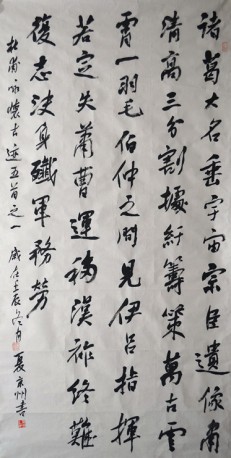 諸葛大名垂宇宙宗臣遺像肅
清高三分割據紆籌策萬古雲
霄一羽毛伯仲之間見伊呂指揮
若定失蕭曹運移漢祚終難
復志決身殲軍務勞
杜甫咏懷古迹五首之一 歲在壬辰冬月 夏京州書